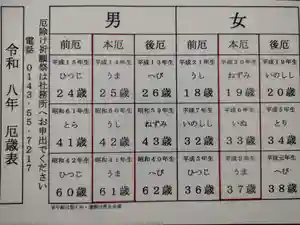 令和八年 厄歳表
厄除け祈願祭は社務所へお申出でください
電話 0143-55-7217
男 女
前厄 本厄 後厄 前厄 本厄 後厄
平成15年生 平成14年生 平成13年生 平成21年生 平成20年生 平成19年生
ひつじ うま へび うし ねずみ いのしし
24歳 25歳 26歳 18歳 19歳 20歳
昭和61年生 昭和60年生 昭和59年生 平成7年生 平成6年生 平成5年生
とら うし ねずみ いのしし いぬ とり
41歳 42歳 43歳 32歳 33歳 34歳
昭和42年生 昭和41年生 昭和40年生 平成3年生 平成2年生 平成元年生
ひつじ うま へび ひつじ うま へび
60歳 61歳 62歳 36歳 37歳 38歳